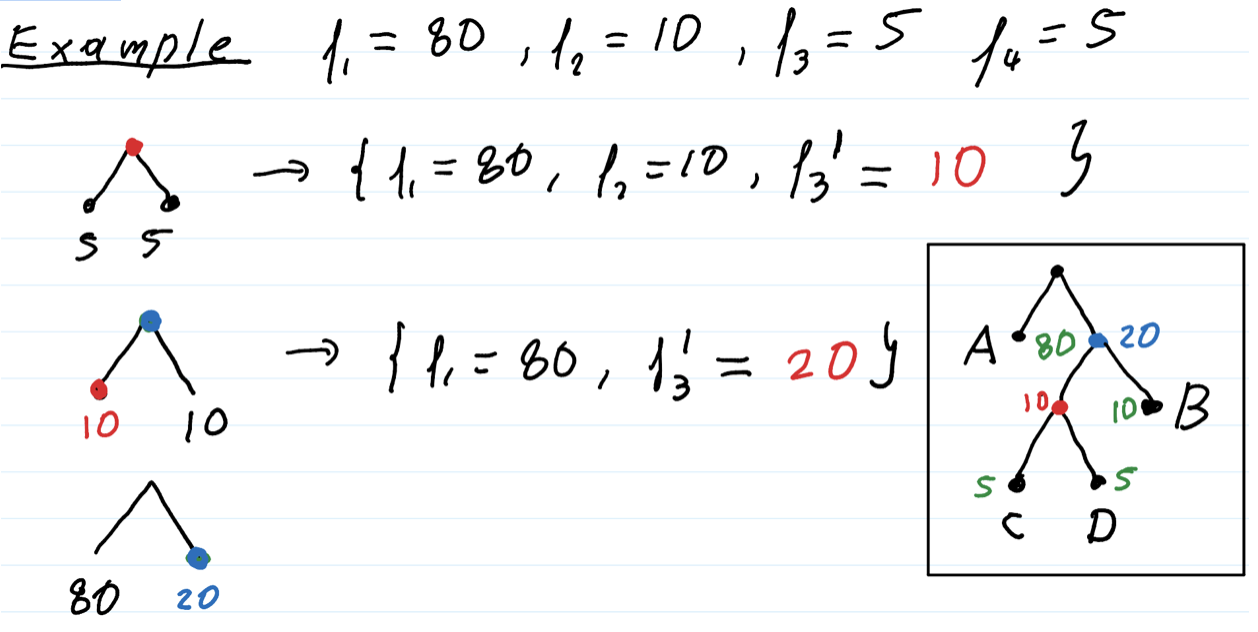 Example f₁ = 80 , f₂ = 10 , f₃ = 5 f₄ = 5
→ { f₁ = 80 , f₂ = 10 , f₃' = 10 }
5 5
→ { f₁ = 80 , f₃' = 20 }
10 10
80 20
A 80 20
10 10 B
5 5
C D